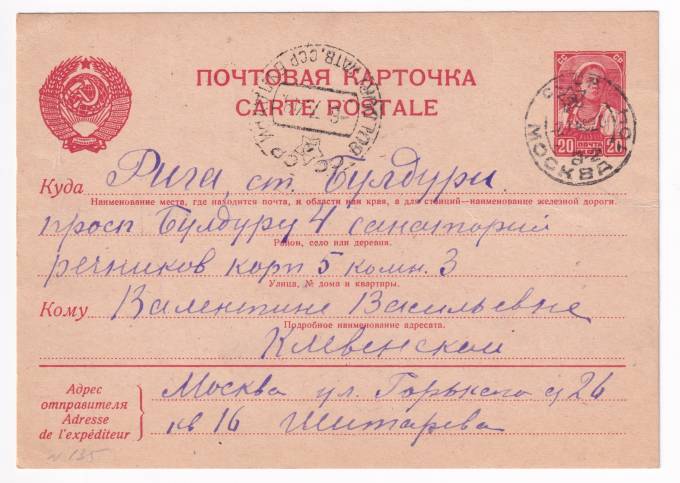 ПОЧТОВАЯ КАРТОЧКА
CARTE POSTALE
20 ПОЧТА 20
МОСКВА
Куда Рига, ст. Булдури.
Наименование места, где находится почта, и области или края, а для станций—наименование железной дороги.
просп Булдуру 4 санаторий
Район, село или деревня.
речников корп 5 комн. 3
Улица, № дома и квартиры.
Кому Валентине Васильевне
Подробное наименование адресата.
Клевенской
Адрес отправителя
Adresse de l'expéditeur
Москва ул. Горького д 26
кв 16 Шитарева